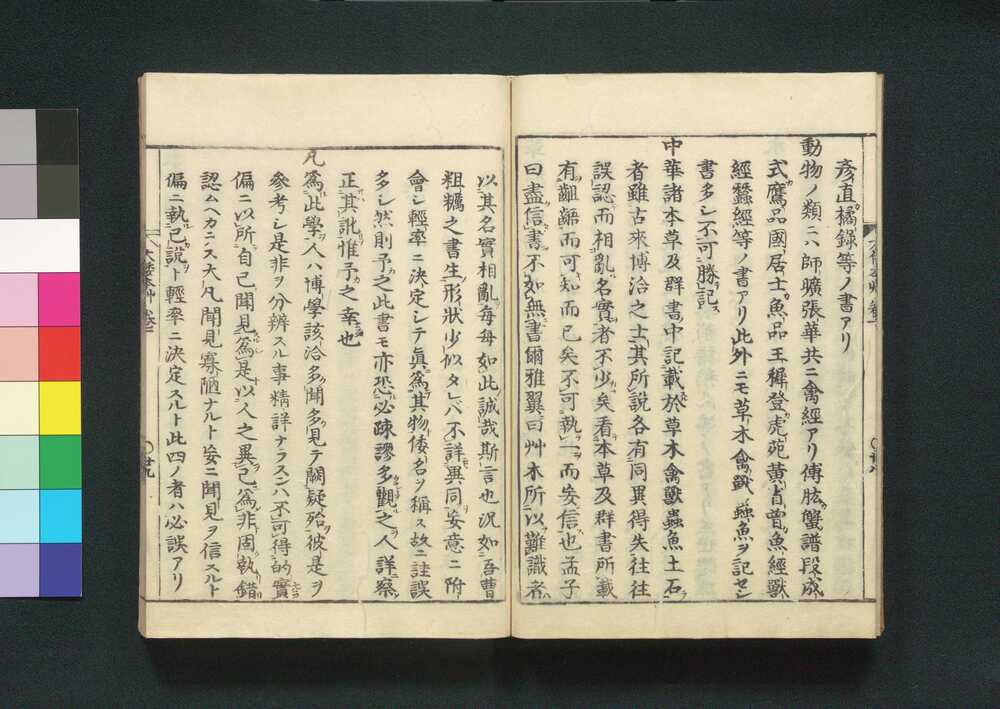 彦直橘錄等ノ書アリ
動物ノ類ニハ師曠張華共ニ禽經アリ傅肱蟹譜段成
式鷹品國居士魚品王穉登虎苑黃省曾魚經獸
經蠶經等ノ書アリ此外ニモ草木禽獸蟲魚ヲ記セシ
書多シ不可勝記
中華諸本草及群書中記載於草木禽獸蟲魚土石
者雖古來博洽之士其所說各有同異得失往往
誤認而相亂名實者不少矣看本草及群書所載
有齟齬而可知而已矣不可執一而妄信也孟子
曰盡信書不如無書爾雅翼曰艸木所以難識者
以其名實相亂每每如此誠哉斯言也況如吾曹
粗糲之書生形狀少似タレバ不詳異同妄意ニ附
會シ輕率ニ決定シテ眞爲其物倭名ヲ稱ス故ニ註誤
多シ然則予之此書モ亦恐必疎謬多觀之人詳察
正其訛惟予之幸也
凡爲此學人ハ博學該洽多聞多見テ闕疑殆彼是ヲ
參考シ是非ヲ分辨スル事精詳ナラスンハ不可得的實
偏ニ以所自己聞見爲是以人之異己爲非固執錯
認ムヘカラス大凡聞見寡陋ナルト妄ニ聞見ヲ信スルト
偏ニ執己說ト輕率ニ決定スルト此四ノ者ハ必誤アリ